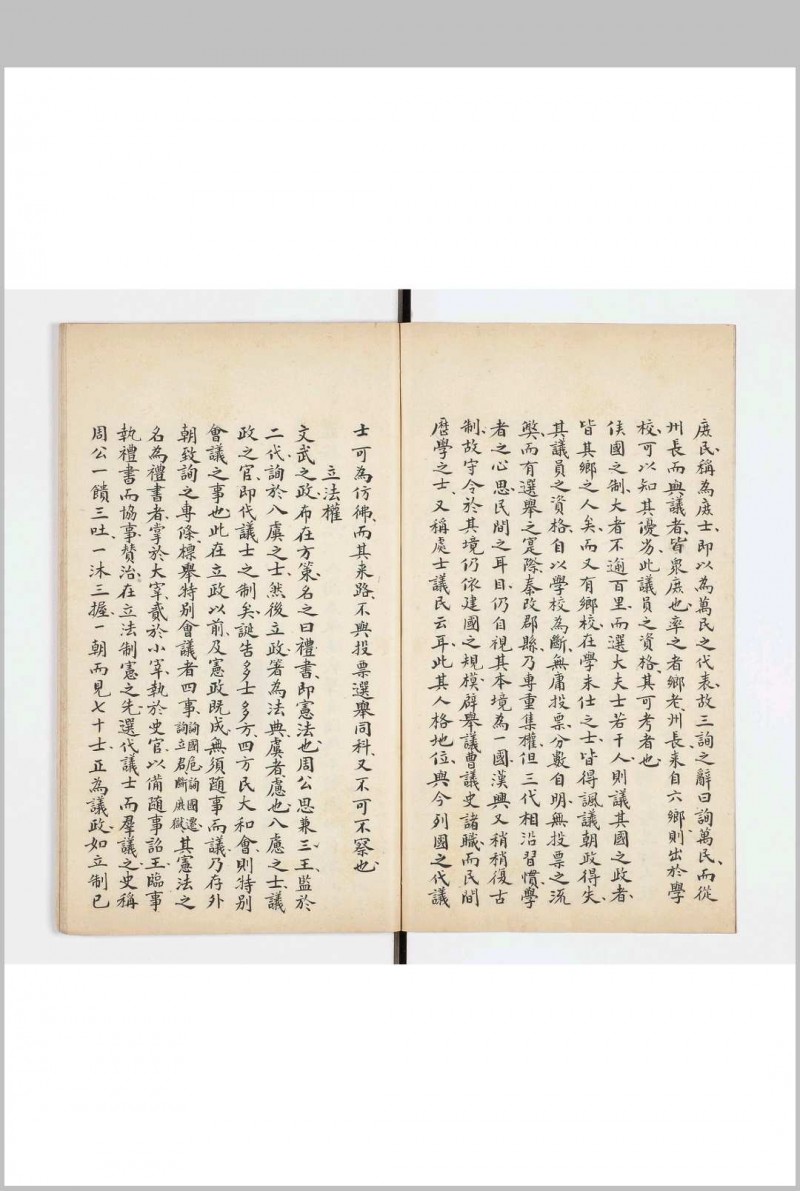 庶民、稱為庶士、即以為萬民之代表、故三詢之辭曰詢萬民、而從
州長而與議者、皆眾庶也、率之者鄉老、州長、来自六鄉、則出於學
校、可以知其優劣、此議員之資格、其可考者也、
侯國之制、大者不過百里、而選大夫士若干人、則議其國之政者、
皆其鄉之人矣、而又有鄉校、在學未仕之士、皆得諷議朝政得失、
其議員之資格、自以學校為斷、無庸投票、分數自明、無投票之流
弊、而有選舉之寔際、秦改郡縣、乃專重集權、但三代相沿習慣、學
者之心思、民間之耳目、仍自視其本境為一國、漢興、又稍稍復古
制、故守令於其境、仍依建國之規模、辟舉議曹議史諸職、而民間
歷學之士、又稱處士議民云耳、此其人格地位、與今列國之代議
士可為仿彿、而其来路不與投票選舉同科、又不可不察也、
立法權
文武之政、布在方策、名之曰禮書、即憲法也、周公思兼三王、監於
二代、詢於八虞之士、然後立政、箸為法典、虞者、慮也、八慮之士、議
政之官、即代議士之制矣、誕告多士多方、四方民大和會、則特別
會議之事也、此在立政以前、及憲政既成、無須隨事而議、乃存外
朝致詢之專條、標舉特別會議者四事、詢國危詢國遷詢立君斷庶獄其憲法之
名為禮書者、掌於大宰、貳於小宰、執於史官、以備隨事詔王、臨事
執禮書而協事、贊治、在立法制憲之先、選代議士而羣議之、史稱
周公一饋三吐、一沐三握、一朝而見七十士、正為議政、如立制已